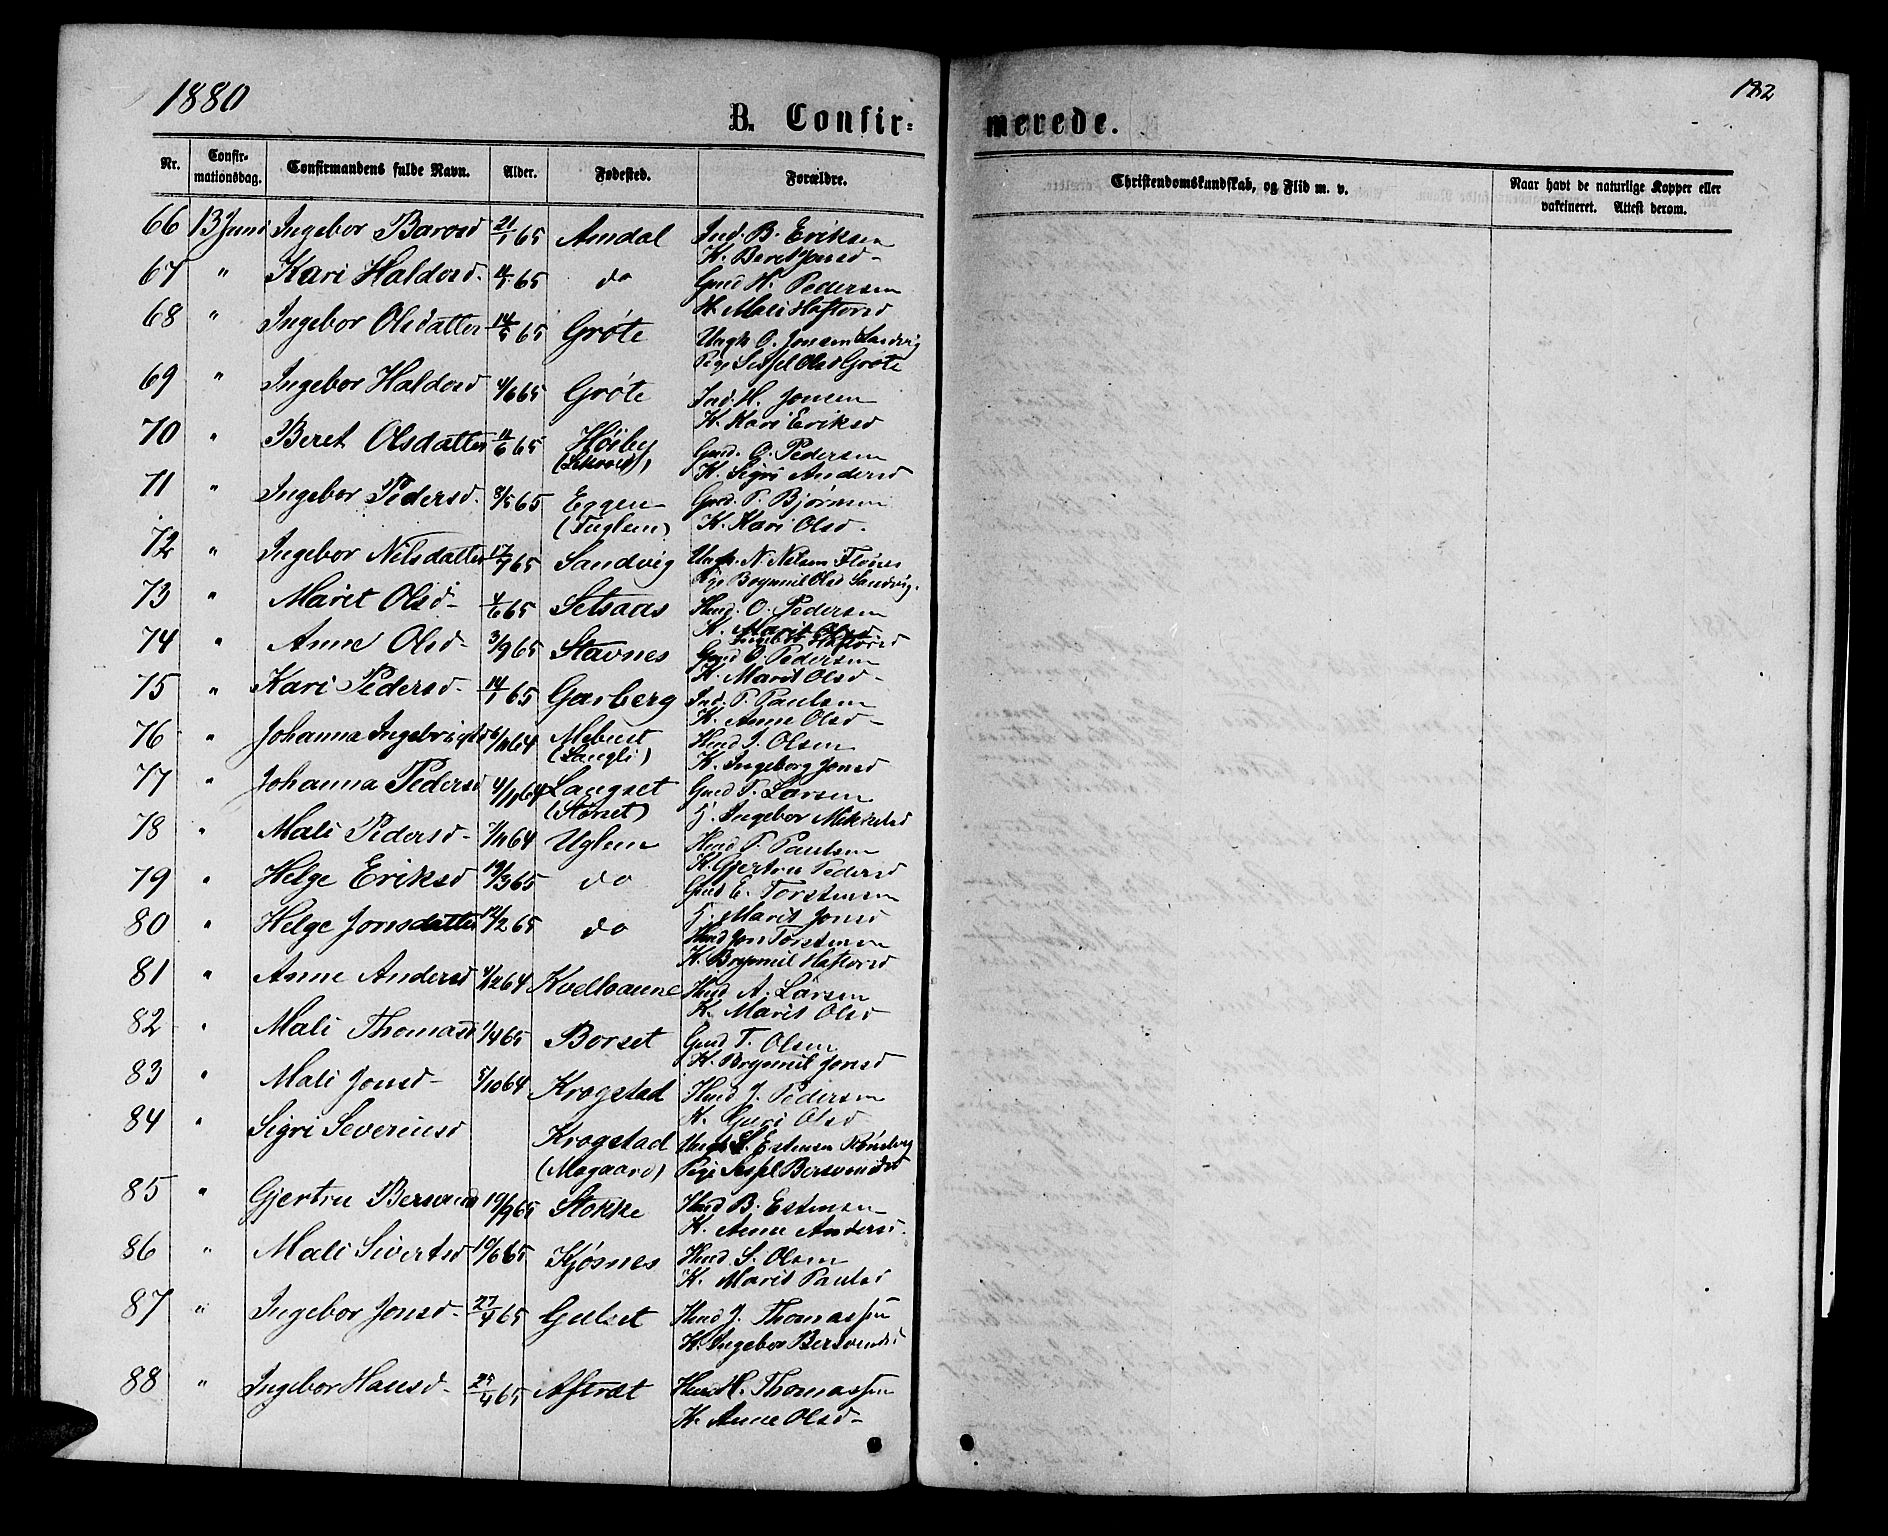 1880
182
B. Confir=
merede.
Nr. Confirmationsdag. Confirmandens fulde Navn. Alder. Fødested. Forældre.
Christendomskundskab, og Flid m. v. Naar havt de naturlige Kopper eller vakcineret. Attest derom.
66 13 Juni Ingebor Barosd 21/1 65 Amdal Ind. B. Eriksen
K. Beret Jonsd-
67 " Kari Haldosd- 65 do Gmd H. Pedersen
K. Mali Haftorsd
68 " Ingebor Olsdatter 14/5 65 Grøte Ungk O. Jonsen Sandvig
Pige Sessel Olsd Grøte
69 " Ingebor Haldosd 4/6 65 Grøte Ind. H. Jonsen
K. Kari Eriksd
70 " Beret Olsdatter 11/6 65 Høiby Gmd. O. Pedersen
K. Sigri Andersd
71 " Ingebor Pedersd. 8/5 65 Eggen Gmd. P. Bjørnsen
(Tuglem) K. Kari Olsd.
72 " Ingebor Nilsdatter 17/7 65 Sandvig Ungk. N. Nilsen Flønes
Pige Brynnil Olsd Sandvig.
73 " Marit Olsd- 4/6 65 Setsaas Hmd. O. Pedersen
K. Haftorsd
74 " Anne Olsd- 3/9 65 Stavnes Gmd O. Pedersen
K. Marit Olsd-
75 " Kari Pedersd- 14/1 65 Garberg Ind. P. Paulsen
K. Anne Olsd-
76 " Johanna Ingebrigtsd 64 Mebust Hmd I. Olsen
(Langli) K. Ingeborg Jonsd
77 " Johanna Pedersd 4/11 64 Langset Gmd P. Larsen
(Storset) K. Ingebor Mikkelsd
78 " Mali Pedersd- 7/11 64 Uglem Hmd P. Paulsen
K. Gjertru Pedersd
79 " Helge Eriksd 19/3 65 do Gmd E. Torstensen
K. Marit Jonsd
80 " Helge Jonsdatter 12/2 65 do Hmd Jon Torstensen
K. Brynnil Haftorsd
81 " Anne Andersd 4/12 64 Kvelhaune Hmd A. Larsen
K. Marit Olsd
82 " Mali Thomasd 1/4 65 Borset Gmd T. Olsen
K. Brynnil Jonsd
83 " Mali Jonsd- 5/10 64 Krogstad Hmd J. Pedersen
K. Guri Olsd
84 " Sigri Severinsd Krogstad Ungk S. Estensen Rønsberg
(Mogaard) Pige Sessel Bersvendsd
85 " Gjertru Bersvend 19/9 65 Stokke Hmd B. Estensen
K. Anne Andersd.
86 " Mali Sivertsd 10/6 65 Kjøsnes Hmd. S. Olsen
K. Marit Paulsd
87 " Ingebor Jonsd- 27/4 65 Gulset Hmd J. Thomassen
K. Ingebor Bersvendsd
88 " Ingebor Hansd- 25/4 65 Aftret Hmd H. Thomassen
K. Anne Olsd-